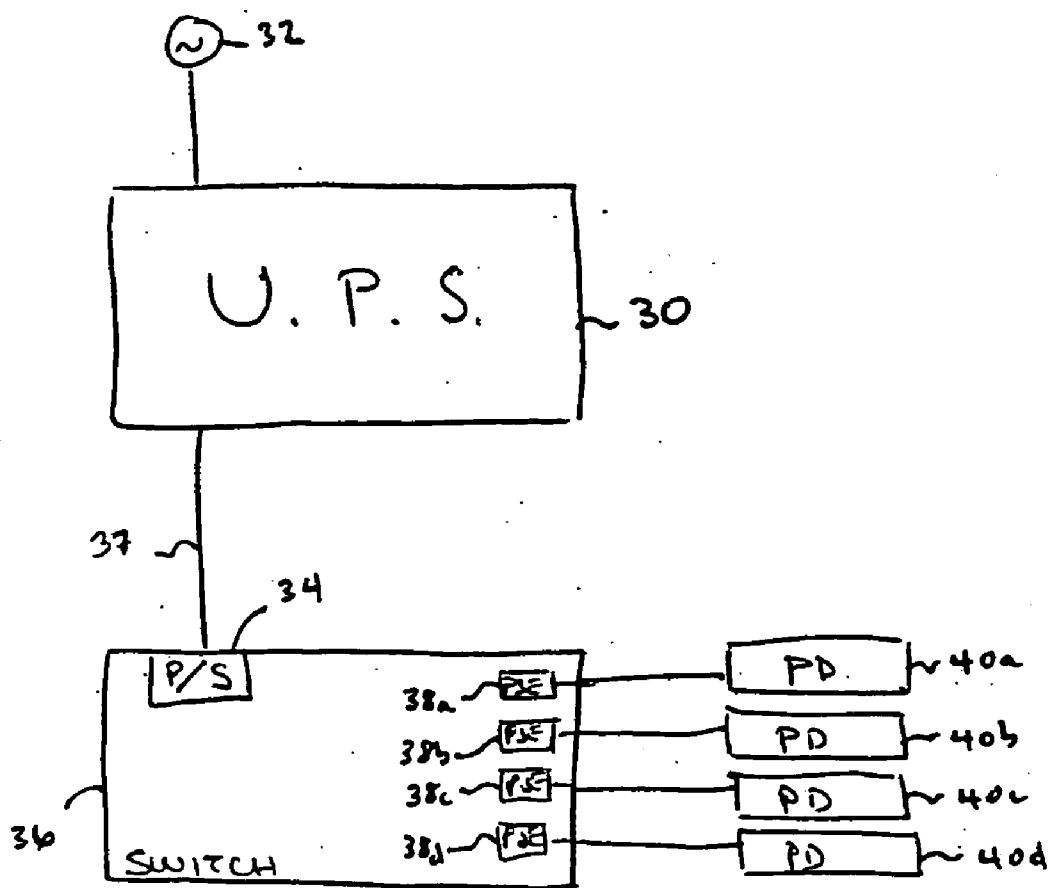 32
U. P. S.
30
37
34
P/S
38a PSE PD 40a
38b PSE PD 40b
38c PSE PD 40c
38d PSE PD 40d
36
SWITCH